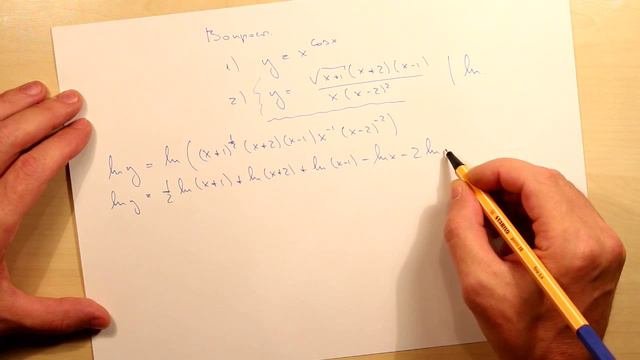 Вопросы
1) y = x^cosx
2) { y = √(x+1) (x+2) (x-1) / x (x-2)² | ln
ln y = ln ( (x+1)^½ (x+2) (x-1) x⁻¹ (x-2)⁻² )
ln y = ½ ln (x+1) + ln (x+2) + ln (x-1) - ln x - 2 ln
STABILO